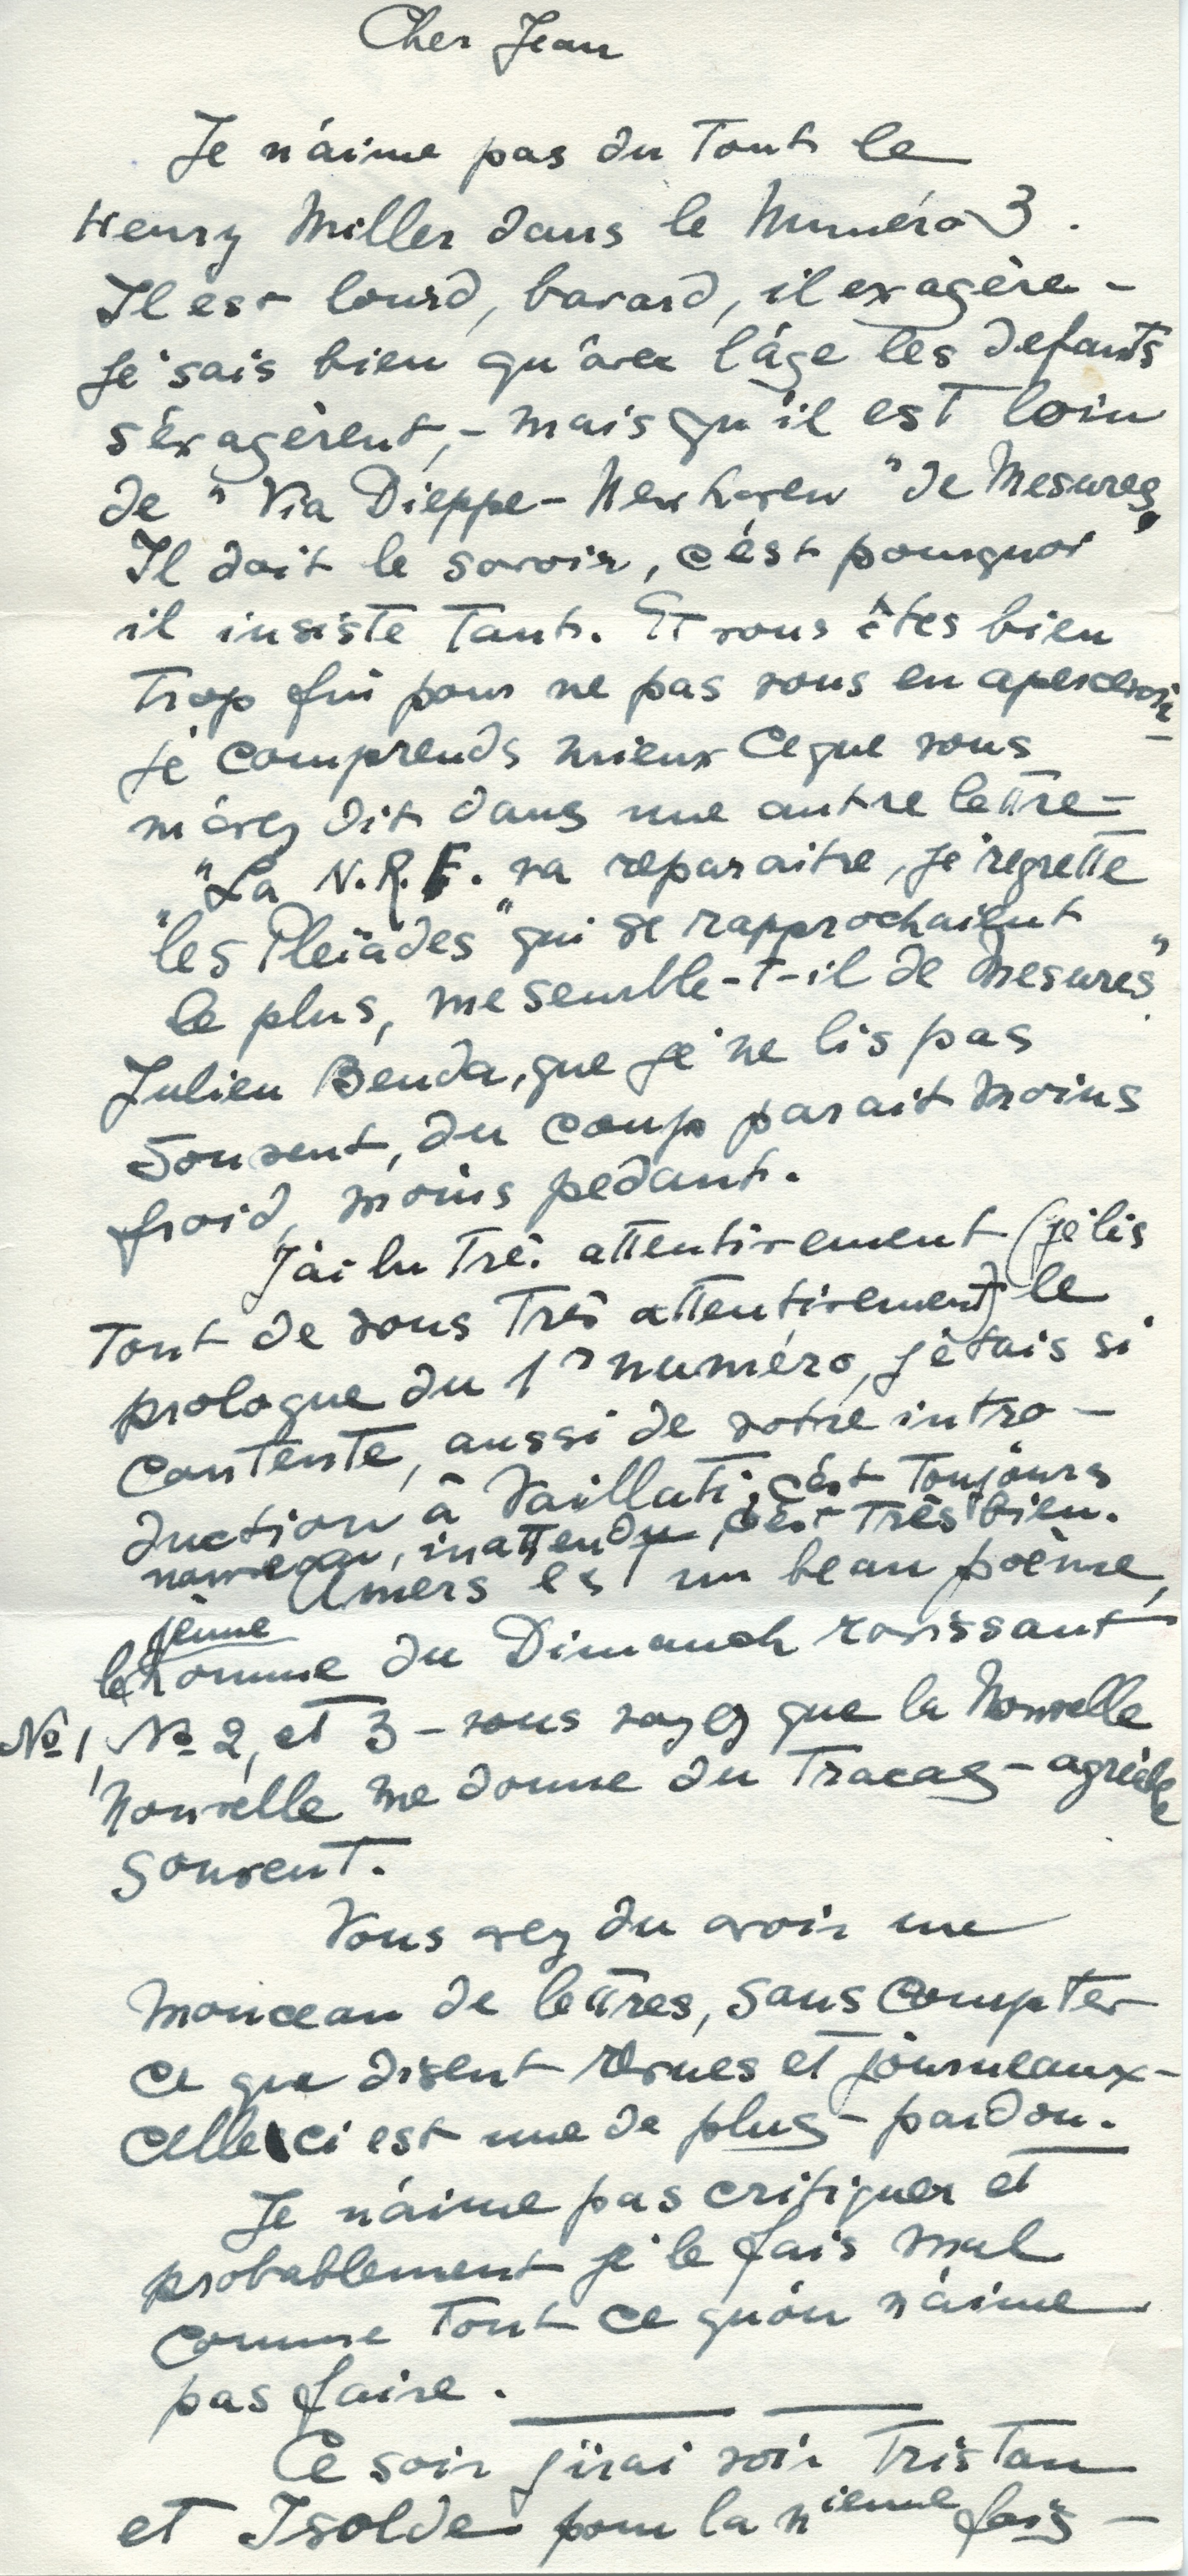 Cher Jean
Je n'aime pas du tout le
Henry Miller dans le Numéro 3.
Il est lourd, bavard, il exagère -
Je sais bien qu'avec l'âge les defauts
s'éxagèrent, - mais qu'il est loin
de "Via Dieppe - Newhaven" de Mesures,
Il doit le savoir, c'est pourquoi
il insiste tant. Et vous êtes bien
trop fin pour ne pas vous en apercevoir -
Je comprends mieux ce que vous
m'avez dit dans une autre lettre -
"La N.R.F. va reparaitre, je regrette
"les Pleïades" qui se rapprochaient
le plus, me semble-t-il de Mesures".
Julien Benda, que je ne lis pas
souvent, du coup parait moins
froid, moins pedant.
J'ai lu très attentivement (je lis
tout de vous très attentivement) le
prologue du 1er numéro, j'étais si
contente, aussi de votre intro-
duction à Vaillati, c'est toujours
nouveau, inattendu, c'est très bien.
Amers est un beau poème,
le jeune homme du Dimanch ravissant
No 1, No 2, et 3 - vous voyez que la Nouvelle
Nouvelle me donne du tracas - agréable
souvent.
Vous avez du avoir une
monceau de lettres, sans compter
ce que disent revues et journeaux -
celle ci est une de plus - pardon.
Je n'aime pas critiquer et
probablement je le fais mal
comme tout ce qu'on n'aime
pas faire.
Ce soir j'irai voir Tristan
et Isolde pour la nieme fois -